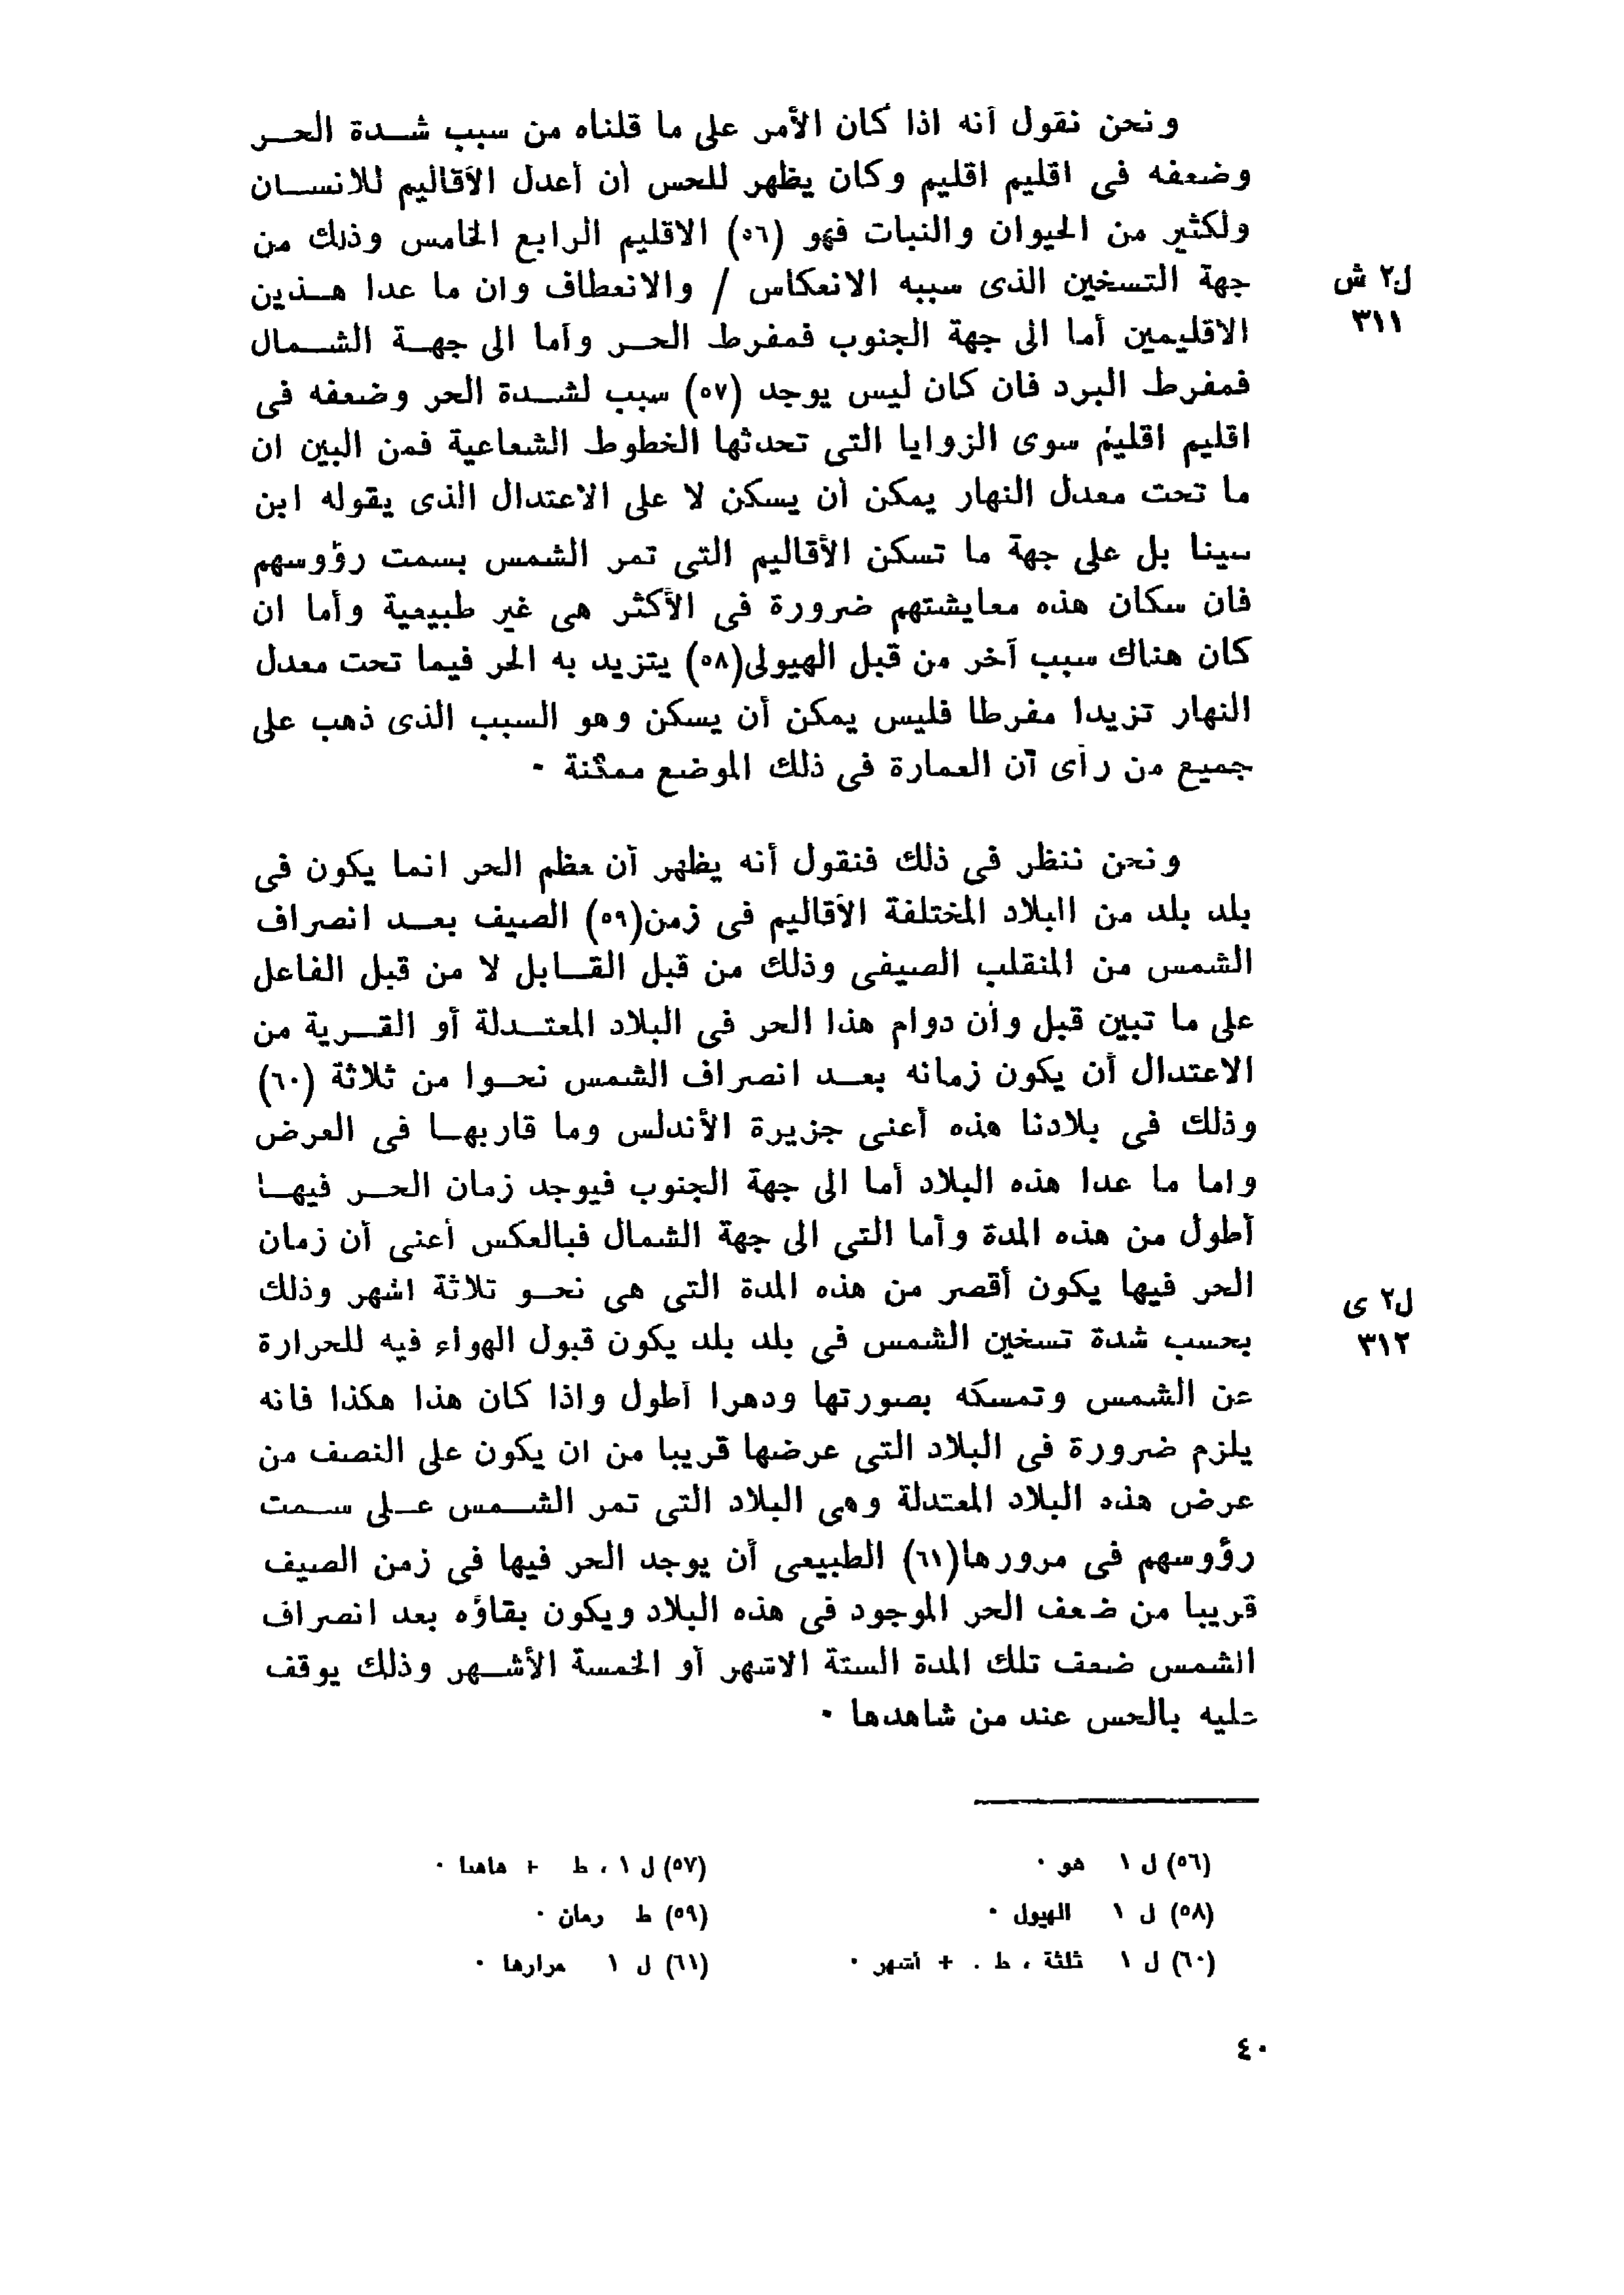 ونحن نقول أنه اذا كان الأمر على ما قلناه من سبب شدة الحر
وضعفه فى اقليم اقليم وكان يظهر للحس أن أعدل الأقاليم للانسان
ولكثير من الحيوان والنبات فهو (٥٦) الاقليم الرابع الخامس وذلك من
جهة التسخين الذى سببه الانعكاس / والانعطاف وان ما عدا هذين
ل٢ ش
٣١١
الاقليمين أما الى جهة الجنوب فمفرط الحر وأما الى جهة الشمال
فمفرط البرد فان كان ليس يوجد (٥٧) سبب لشدة الحر وضعفه فى
اقليم اقليم سوى الزوايا التى تحدثها الخطوط الشعاعية فمن البين ان
ما تحت معدل النهار يمكن أن يسكن لا على الاعتدال الذى يقوله ابن
سينا بل على جهة ما تسكن الأقاليم التى تمر الشمس بسمت رؤوسهم
فان سكان هذه معايشتهم ضرورة فى الأكثر هى غير طبيعية وأما ان
كان هناك سبب آخر من قبل الهيولى(٥٨) يتزيد به الحر فيما تحت معدل
النهار تزيدا مفرطا فليس يمكن أن يسكن وهو السبب الذى ذهب على
جميع من رأى أن العمارة فى ذلك الموضع ممكنة ٠
ونحن ننظر فى ذلك فنقول أنه يظهر أن عظم الحر انما يكون فى
بلد بلد من البلاد المختلفة الأقاليم فى زمن(٥٩) الصيف بعد انصراف
الشمس من المنقلب الصيفى وذلك من قبل القابل لا من قبل الفاعل
على ما تبين قبل وأن دوام هذا الحر فى البلاد المعتدلة أو القرية من
الاعتدال أن يكون زمانه بعد انصراف الشمس نحوا من ثلاثة (٦٠)
وذلك فى بلادنا هذه أعنى جزيرة الأندلس وما قاربها فى العرض
واما ما عدا هذه البلاد أما الى جهة الجنوب فيوجد زمان الحر فيها
أطول من هذه المدة وأما التى الى جهة الشمال فبالعكس أعنى أن زمان
الحر فيها يكون أقصر من هذه المدة التى هى نحو ثلاثة اشهر وذلك
ل٢ ى
٣١٢
بحسب شدة تسخين الشمس فى بلد بلد يكون قبول الهواء فيه للحرارة
عن الشمس وتمسكه بصورتها ودهرا أطول واذا كان هذا هكذا فانه
يلزم ضرورة فى البلاد التى عرضها قريبا من ان يكون على النصف من
عرض هذه البلاد المعتدلة وهى البلاد التى تمر الشمس على سمت
رؤوسهم فى مرورها(٦١) الطبيعى أن يوجد الحر فيها فى زمن الصيف
قريبا من ضعف الحر الموجود فى هذه البلاد ويكون بقاؤه بعد انصراف
الشمس ضعف تلك المدة الستة الاشهر أو الخمسة الأشهر وذلك يوقف
عليه بالحس عند من شاهدها ٠
(٥٦) ل ١ هو ٠
(٥٧) ل ١ ، ط + هاهنا ٠
(٥٨) ل ١ الهيول ٠
(٥٩) ط زمان ٠
(٦٠) ل ١ ثلثة ، ط . + أشهر ٠
(٦١) ل ١ مرارها ٠
٤٠